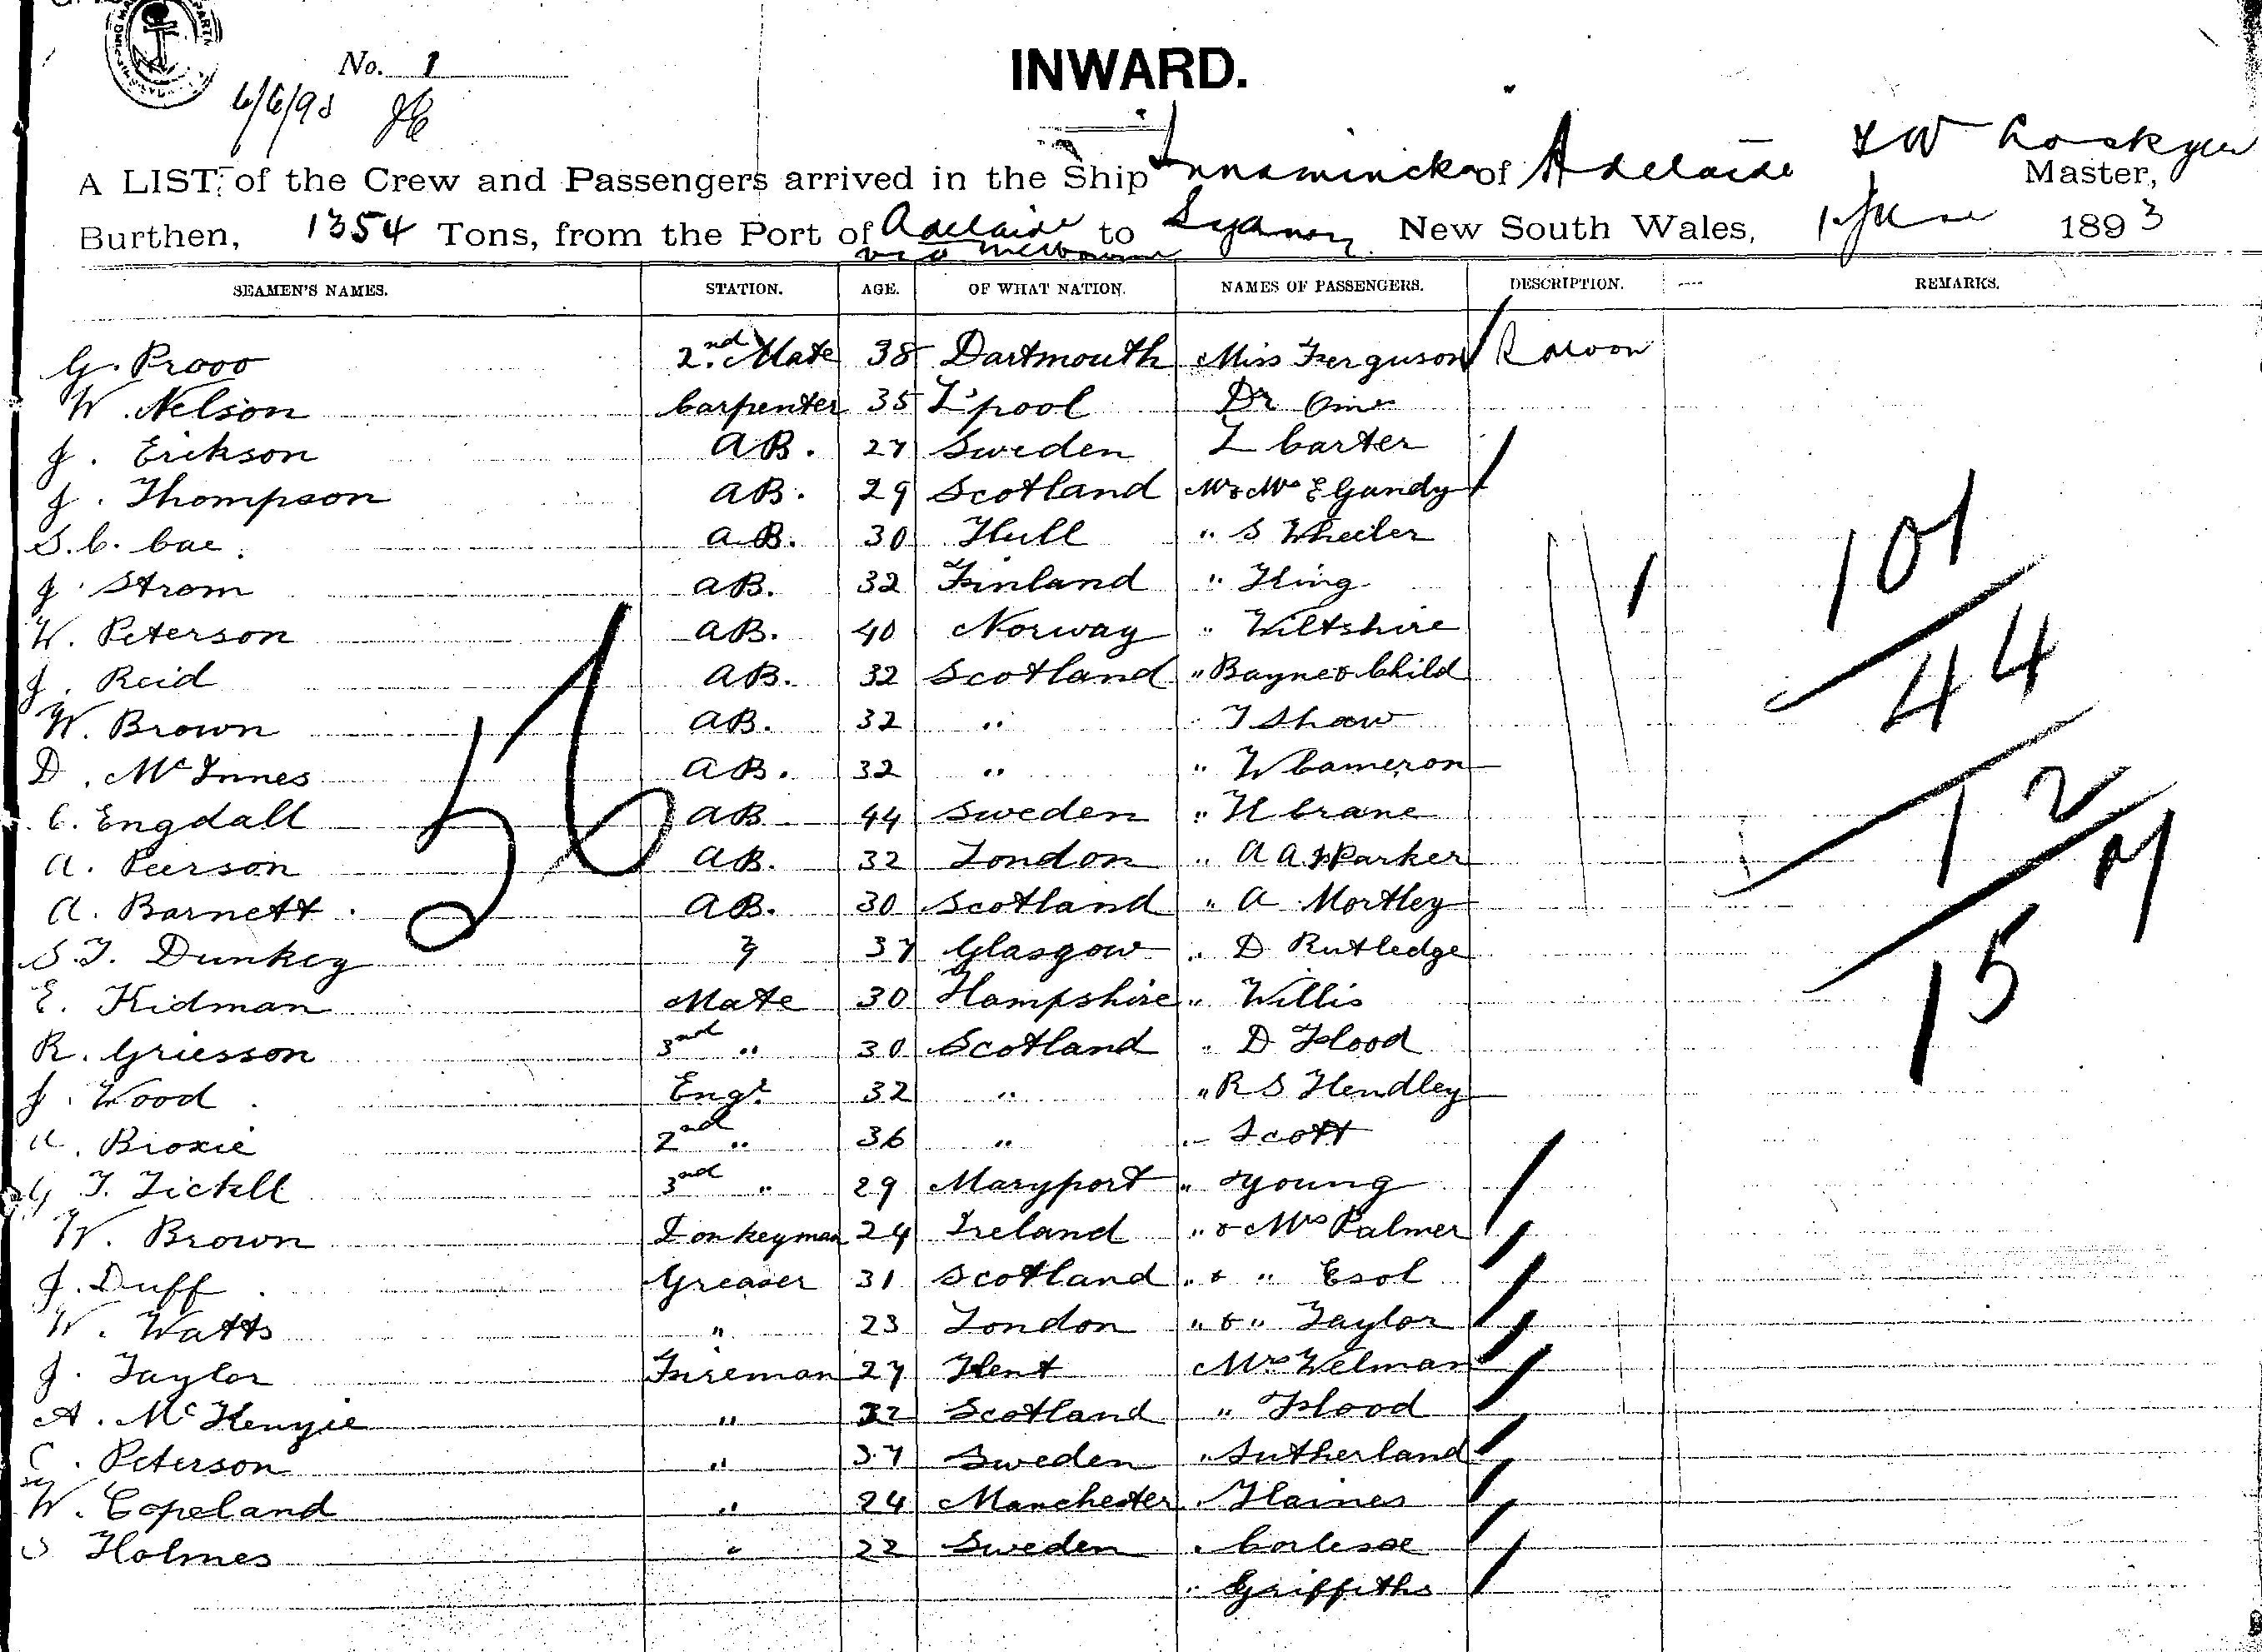 No. 1
INWARD.
6/6/93
A LIST, of the Crew and Passengers arrived in the Ship Innamincka of Adelaide Master,
Burthen, 1354 Tons, from the Port of Adelaide to Sydney New South Wales, 1 June 1893
via Melbourne
SEAMEN'S NAMES. STATION. AGE. OF WHAT NATION. NAMES OF PASSENGERS. DESCRIPTION. REMARKS.
G. Provo 2nd Mate 38 Dartmouth Miss Ferguson Saloon
W. Nelson Carpenter 35 L'pool Dr
J. Erikson AB. 27 Sweden L Carter
J. Thompson AB. 29 Scotland Mr & Mrs E Gandy
S. C. Cae. AB. 30 Hull " S Wheeler
J. Strom AB. 32 Finland " King
W. Peterson AB. 40 Norway " Wiltshire
J. Reid AB. 32 Scotland " Bayne & Child
W. Brown AB. 32 " " T Shaw
D. McInnes AB. 32 " " W Cameron
C. Engdall AB 44 Sweden " H Crane
A. Peerson AB. 32 London " A A Parker
A. Barnett AB. 30 Scotland " A Mortley
S. T. Dunkey 37 Glasgow " D Rutledge
E. Kidman Mate 30 Hampshire " Willis
R. Griesson 3rd " 30 Scotland " D Flood
J. Wood Engr. 32 " " R S Hendley
A. Broxie 2nd " 36 " " Scott
G T. Tickell 3rd " 29 Maryport " Young
W. Brown Donkeyman 24 Ireland " & Mrs Palmer
J. Duff Greaser 31 Scotland " & " Esol
W. Watts " 23 London " & " Taylor
J. Taylor Fireman 27 Kent Mrs Welman
A. McKenzie " 32 Scotland " Flood
C. Peterson " 37 Sweden " Sutherland
W. Copeland " 24 Manchester " Haines
S Holmes " 22 Sweden "
" Griffiths
56
101
44
12
157